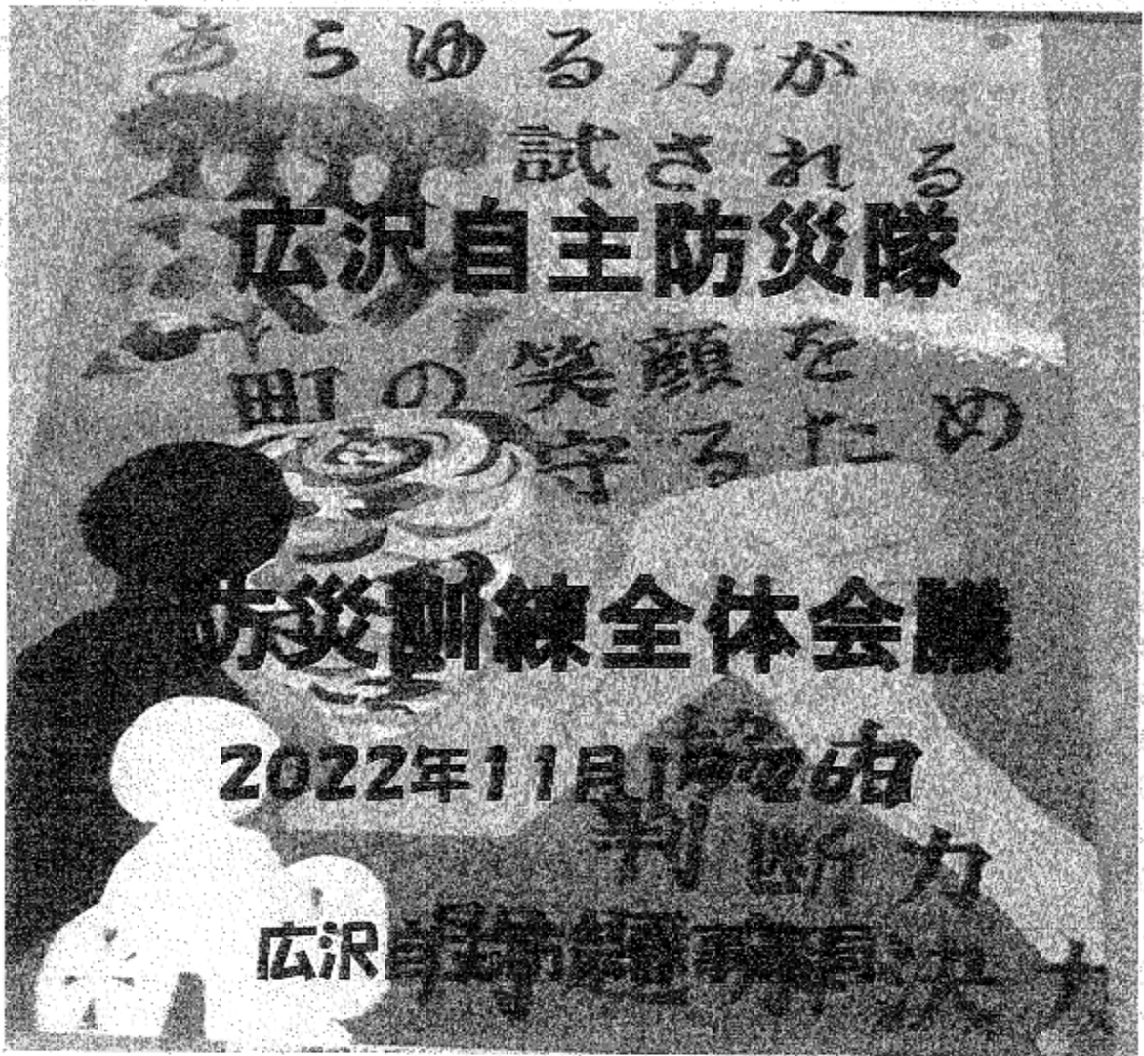 あらゆる力が
試される
広沢自主防災隊
町の笑顔を
守るため
防災訓練全体会議
2022年11月
判断力
広沢
決力